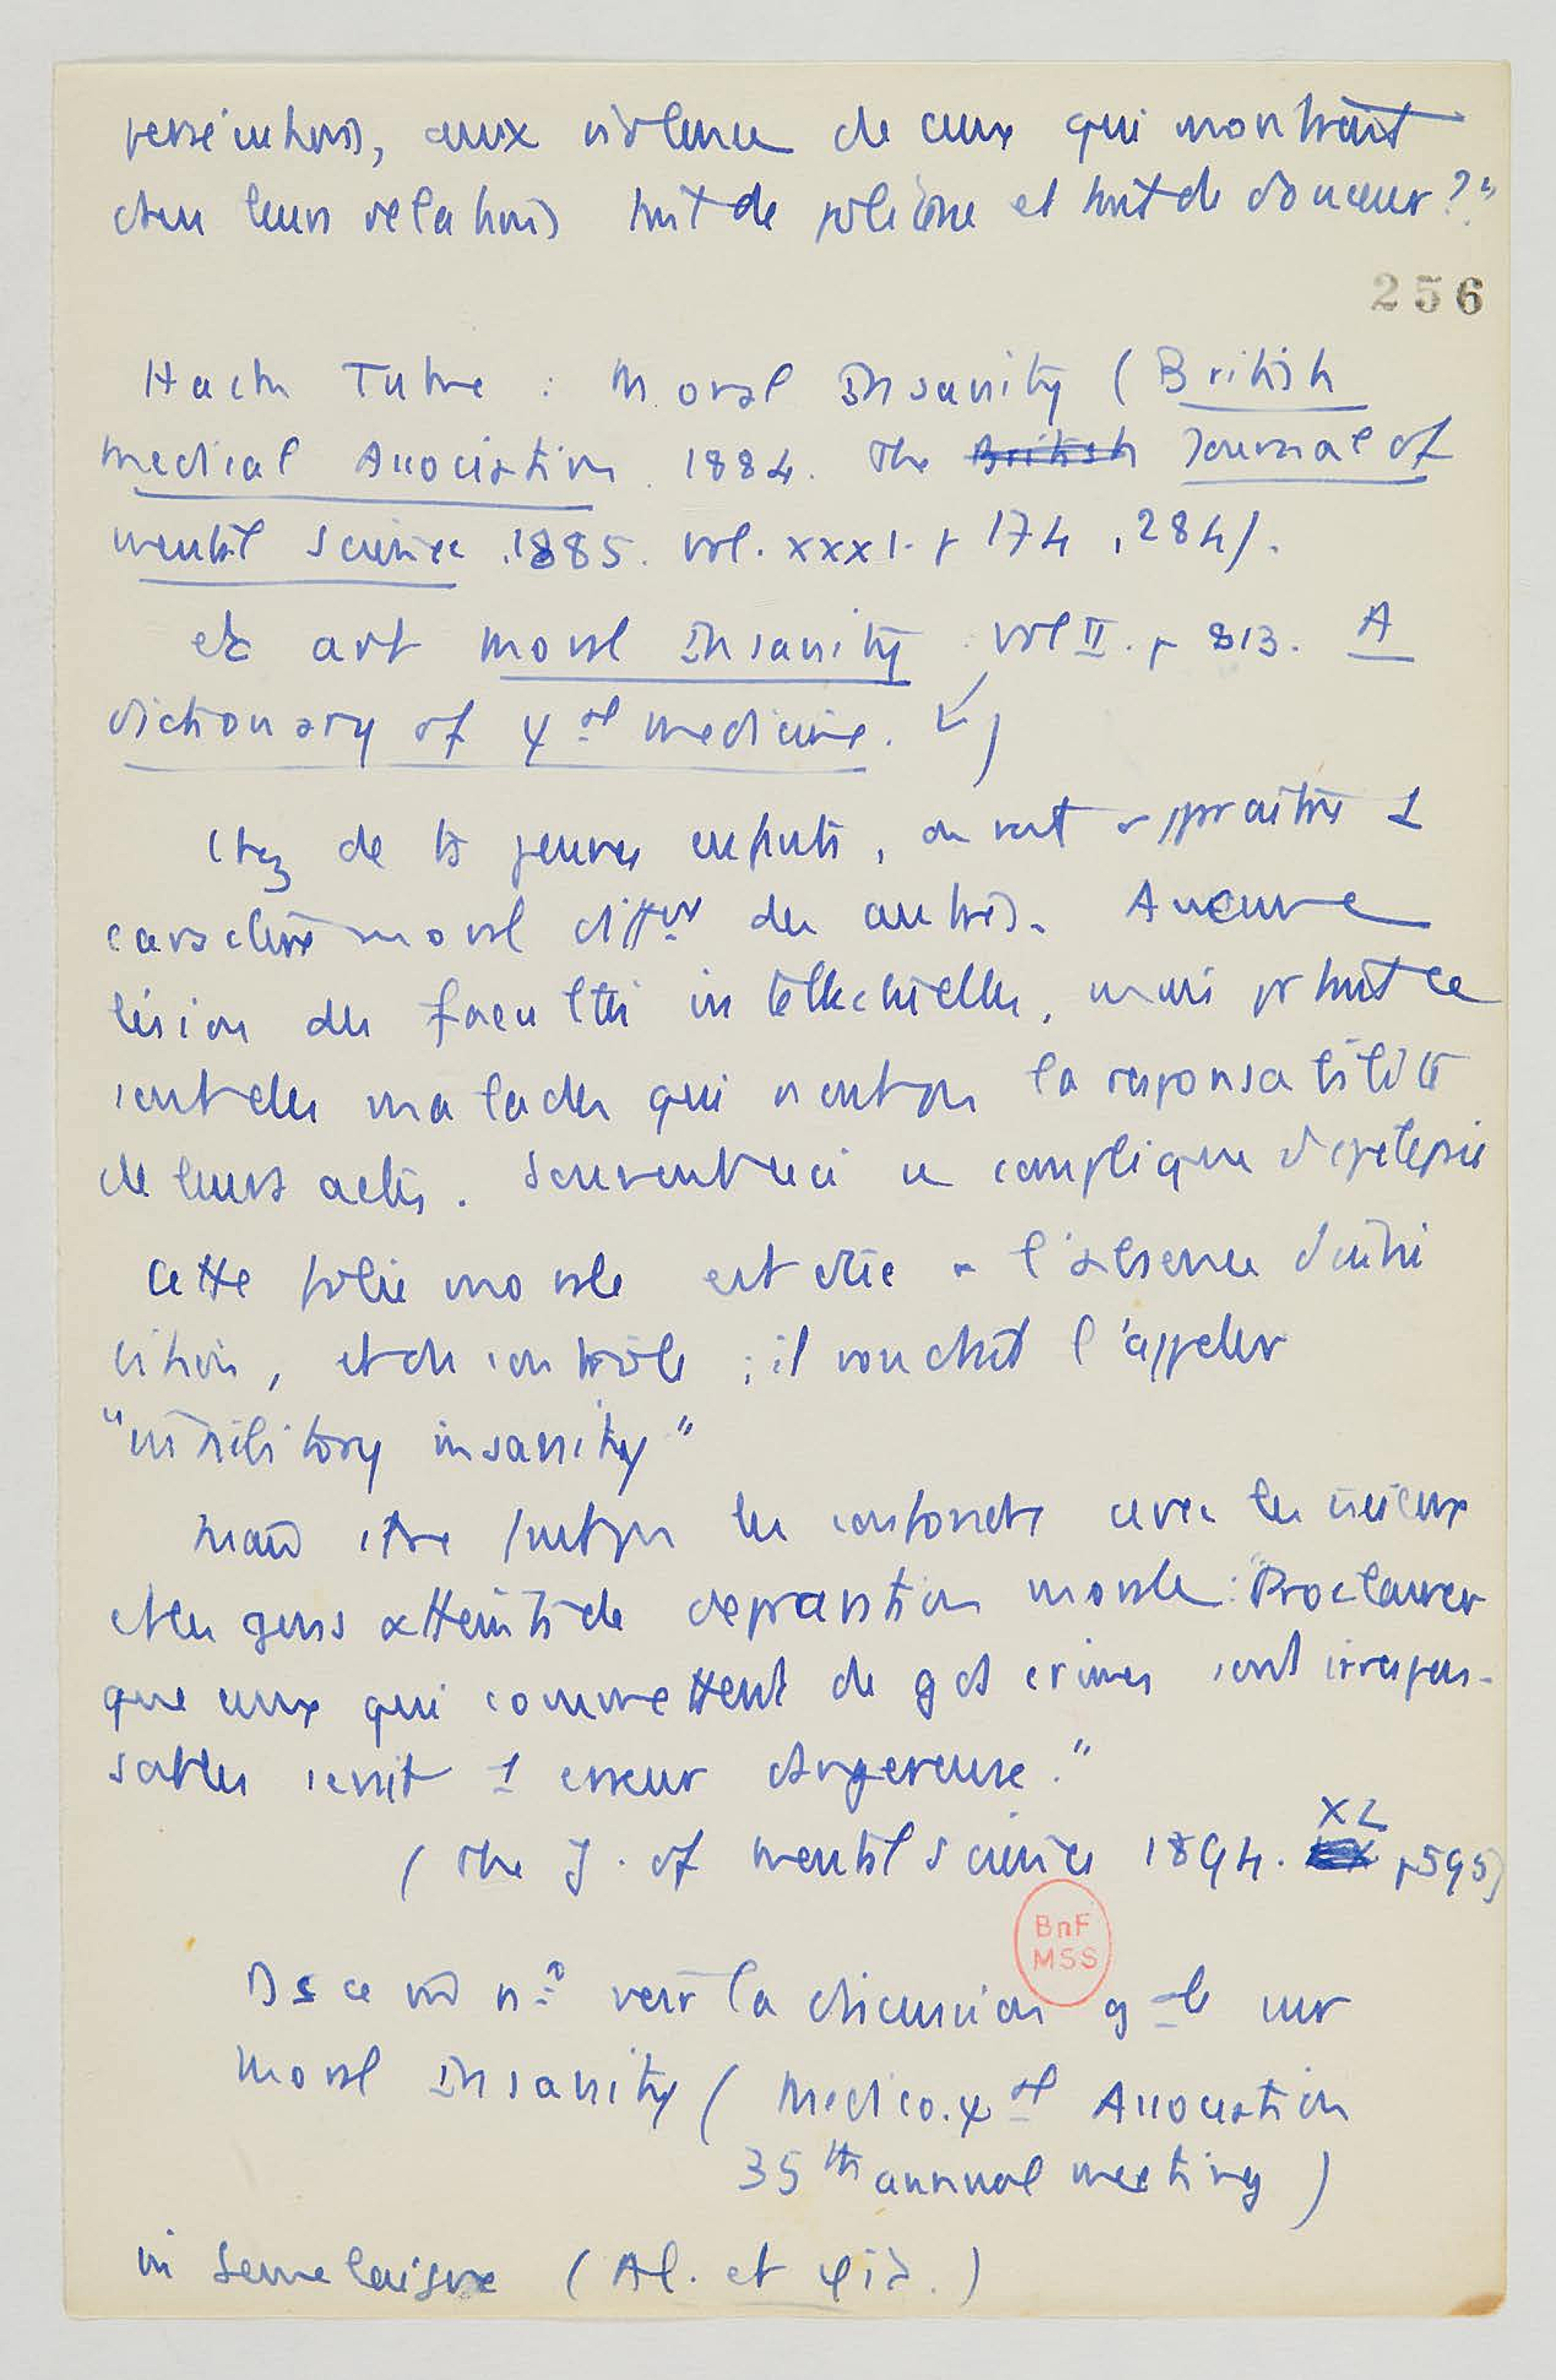 persécutions, aux violences de ceux qui montraient
dans leurs relations tant de politesse et tant de douceur ?"
256
Hack Tuke : Moral Insanity (British
medical Association. 1884. The British Journal of
mental science. 1885. vol. XXXI. p 174, 284).
et art Moral Insanity vol II. p 813. A
dictionary of ψal medicine.)
Chez de ts jeunes enfants, on voit apparaître 1
caractère moral différ des autres. Aucune
lésion des facultés intellectuelles, mais pr tant ce
sont des malades qui n'ont pas la responsabilité
de leurs actes. Souvent ceci se complique d'épilepsie
Cette folie morale est dûe à l'absence d'inhi
bition, et de contrôle ; il voudrait l'appeler
"inhibitory insanity"
Mais il ne faut pas les confondre avec les vicieux
et les gens atteints de dépravation morale : "Proclamer
que ceux qui commettent de gds crimes sont irrespon-
sables serait 1 erreur dangereuse."
(The J. of mental science 1894. XL p595)
BnF
MSS
Ds ce mê n° voir la discussion gale sur
Moral Insanity (Medico.ψal Association
35th annual meeting)
in Semelaigne (Al. et φie.)